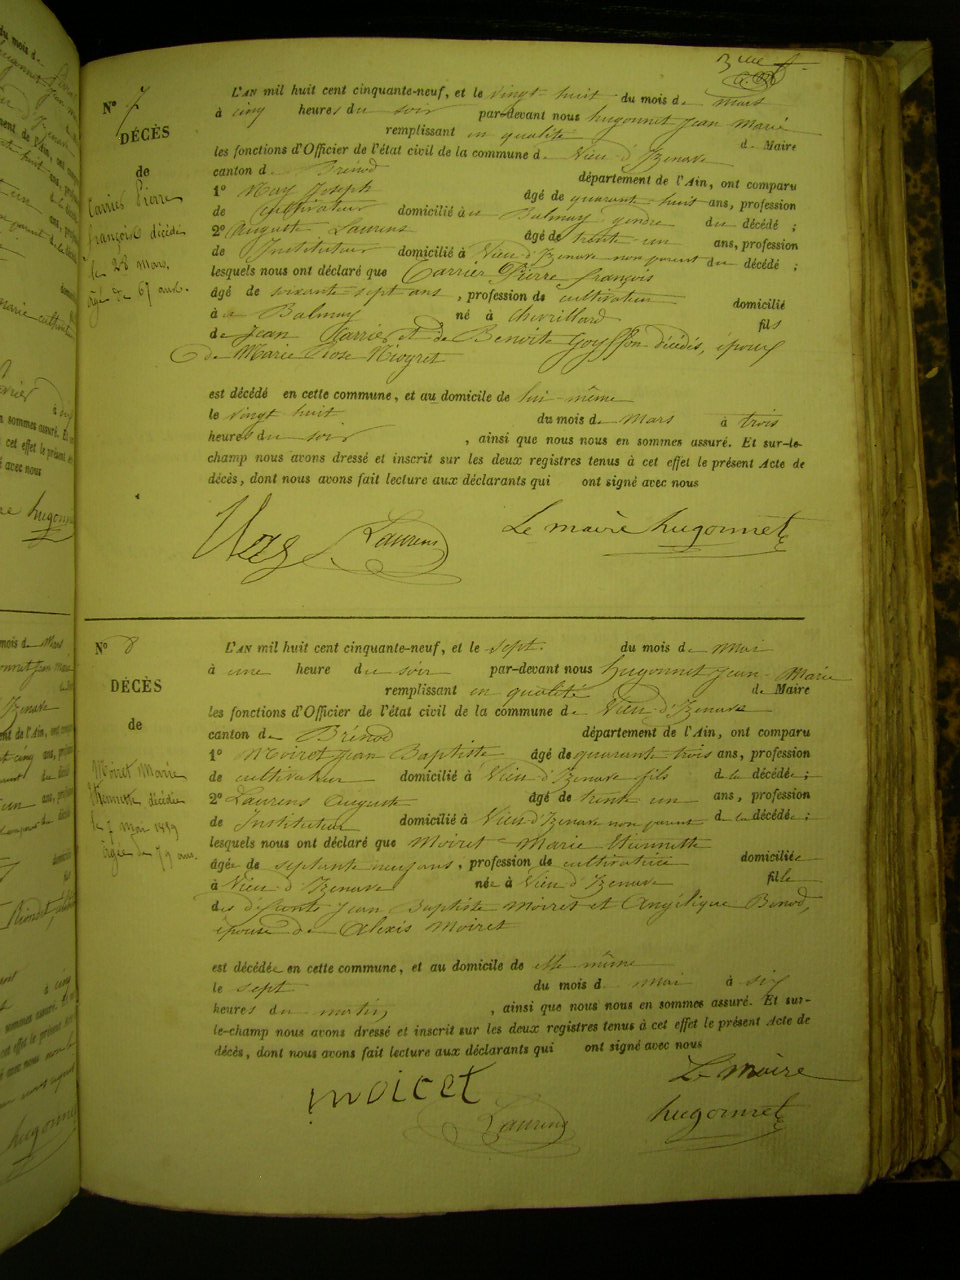 3me f.
N° 7
DÉCÈS
de
Carrier Pierre
françois décédé
le 28 mars,
âgé de 67 ans.
L'AN mil huit cent cinquante-neuf, et le vingt huit du mois de mars
à cinq heures du soir par-devant nous hugonnet Jean Marie
remplissant en qualité de Maire
les fonctions d'Officier de l'état civil de la commune d. Vieu d'Izenave
canton d. Brénod département de l'Ain, ont comparu
1° May Joseph âgé de quarante huit ans, profession
de cultivateur domicilié à Balmay gendre du décédé ;
2° Auguste Laurens âgé de trente un ans, profession
de Instituteur domicilié à Vieu d'Izenave non parent du décédé ;
lesquels nous ont déclaré que Carrier Pierre françois
âgé de soixante sept ans, profession de cultivateur domicilié
à Balmay né à Chevillard fils
de Jean Carrier et de Benoite Goyffon décédés, époux
de Marie Rose Niogret
est décédé en cette commune, et au domicile de lui-même
le vingt huit du mois de mars à trois
heures du soir, ainsi que nous nous en sommes assuré. Et sur-le-
champ nous avons dressé et inscrit sur les deux registres tenus à cet effet le présent Acte de
décès, dont nous avons fait lecture aux déclarants qui ont signé avec nous
Laurens
Le maire hugonnet
N° 8
DÉCÈS
de
Moiret Marie
Etiennette décédée
le 7 mai 1859
âgée de 79 ans.
L'AN mil huit cent cinquante-neuf, et le sept du mois de mai
à une heure du soir par-devant nous hugonnet Jean Marie
remplissant en qualité de Maire
les fonctions d'Officier de l'état civil de la commune de Vieu d'Izenave
canton de Brénod département de l'Ain, ont comparu
1° Moiret Jean Baptiste âgé de quarante trois ans, profession
de cultivateur domicilié à Vieu d'Izenave fils de la décédée ;
2° Laurens Auguste âgé de trente un ans, profession
de Instituteur domicilié à Vieu d'Izenave non parent de la décédée ;
lesquels nous ont déclaré que Moiret Marie Etiennette
âgée de septante neuf ans, profession de cultivatrice domiciliée
à Vieu d'Izenave née à Vieu d'Izenave fille
des défunts Jean Baptiste Moiret et Angélique Bonod,
épouse de Alexis Moiret
est décédée en cette commune, et au domicile de elle même
le sept du mois d. mai à six
heures du matin, ainsi que nous nous en sommes assuré. Et sur-
le-champ nous avons dressé et inscrit sur les deux registres tenus à cet effet le présent Acte de
décès, dont nous avons fait lecture aux déclarants qui ont signé avec nous
moiret
Laurens
Le Maire
hugonnet